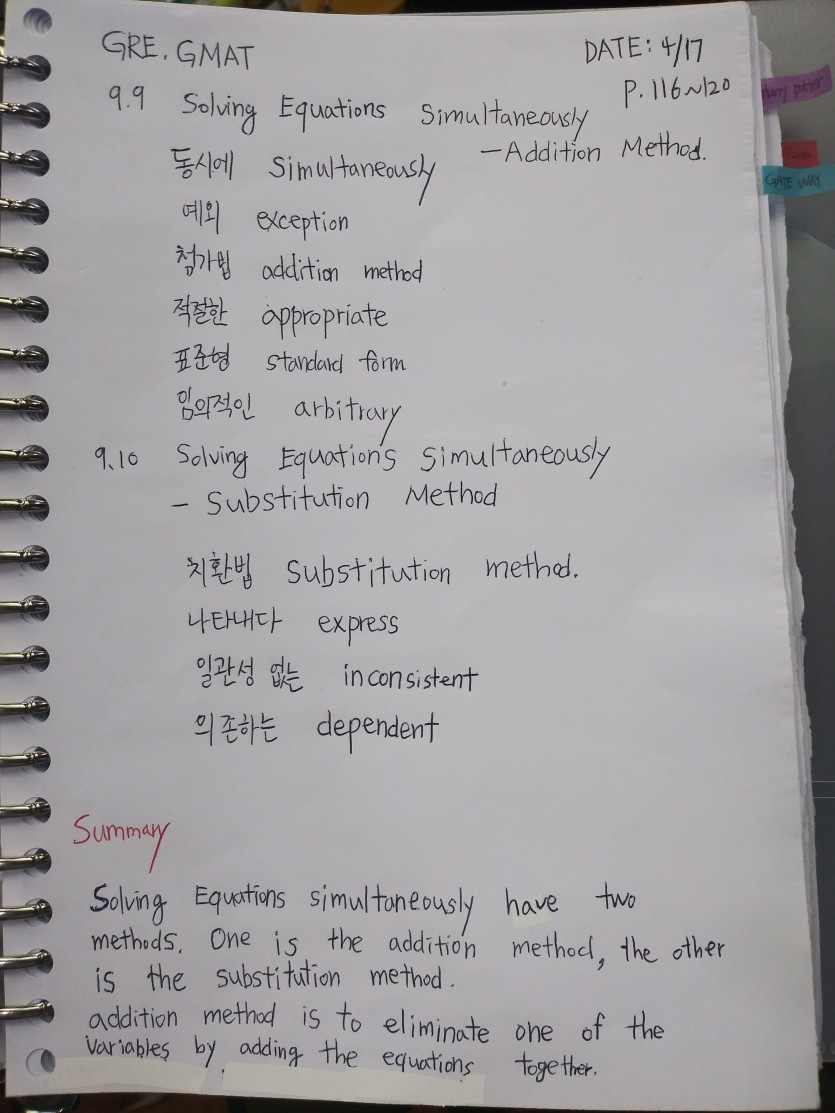 GRE. GMAT
DATE: 4/17
P. 116~120
9.9 Solving Equations Simultaneously
-Addition Method.
동시에 Simultaneously
예외 exception
첨가법 addition method
적절한 appropriate
표준형 standard form
임의적인 arbitrary
9.10 Solving Equations Simultaneously
- Substitution Method
치환법 Substitution method.
나타내다 express
일관성 없는 inconsistent
의존하는 dependent
Summary
Solving Equations simultaneously have two
methods. One is the addition method, the other
is the substitution method.
addition method is to eliminate one of the
Variables by adding the equations together.
GATE WAY